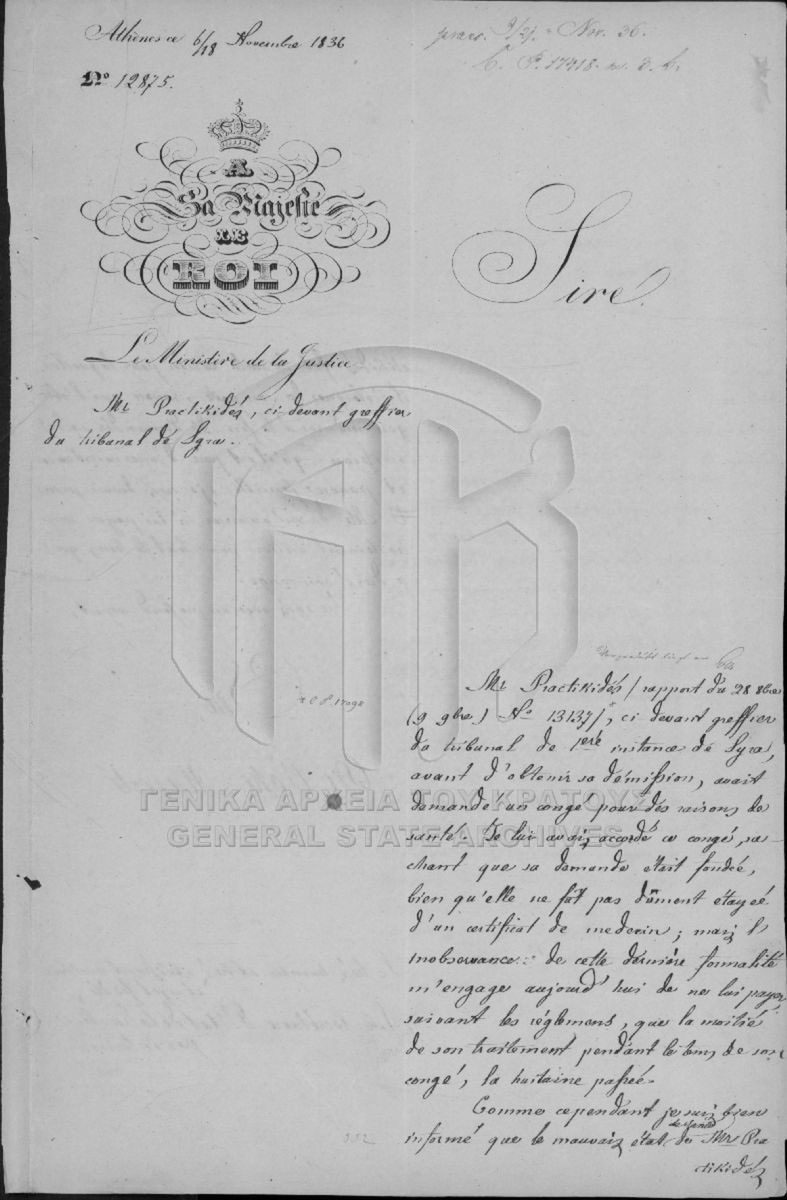 Athènes ce 6/18 Novembre 1836
praes. 9/21 Nov. 36.
No 12875.
A
Sa Majesté
LE
ROI
Siré.
Le Ministère de la Justice
Mr Practikidés, ci devant greffier
du tribunal dé Syra.
Mr Practikidés / rapport du 28 8bre
(9 9bre) No 13137/, ci devant greffier
du tribunal de 1eré instance dé Syra,
avant d'obtenir sa démission, avait
demandé un congé pour dés raisons de
santé. Je lui avais accordé ce congé, sa-
chant que sa demande était fondée,
bien qu'elle ne fût pas dûment étayeé
d'un certificat de medecin; mais l'
inobservance de cette dérnière formalité
m'engage aujourd'hui de ne lui payer,
suivant les réglemens, que la moitié
de son traitement pendant le tems de son
congé, la huitaine passée.
Comme cependant je suis bien
informé que le mauvais état de santé de Mr Pra
ctikidés
ΓΕΝΙΚΑ ΑΡΧΕΙΑ ΤΟΥ ΚΡΑΤΟΥΣ
GENERAL STATE ARCHIVES